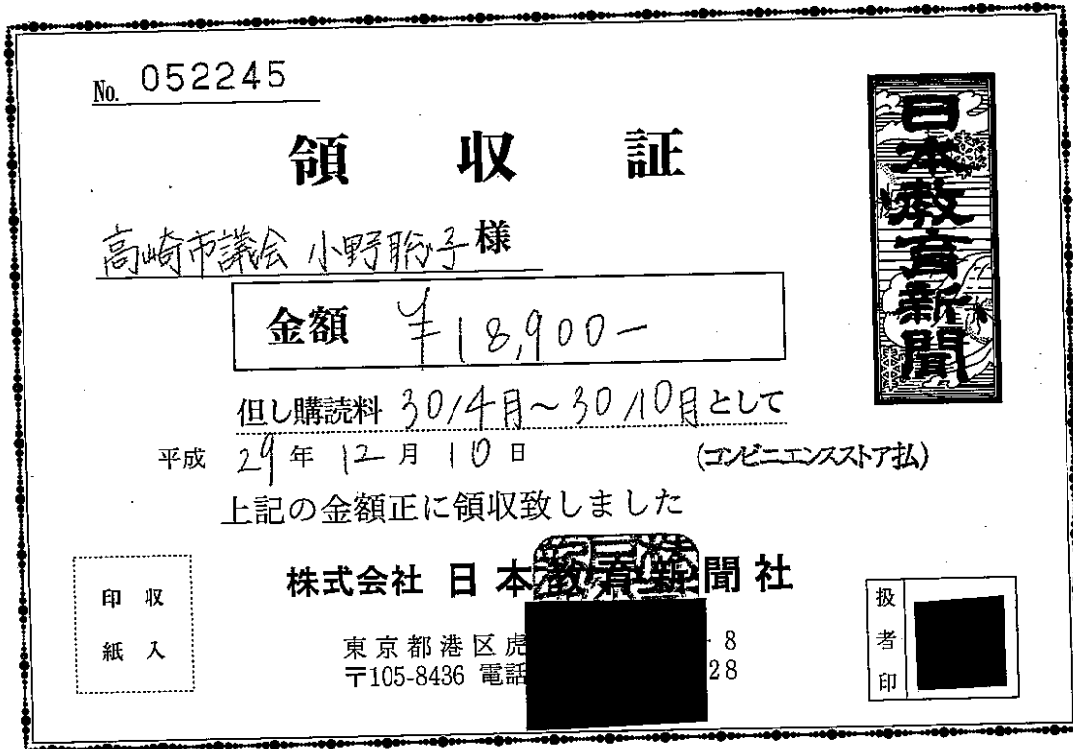 No. 052245
日本教育新聞
領収証
高崎市議会 小野聡子様
金額 ¥18,900-
但し購読料 30/4月～30/10月として
平成 29年 12月 10日
(コンビニエンスストア払)
上記の金額正に領収致しました
株式会社 日本教育新聞社
東京都港区虎 - 8
〒105-8436 電話 28
収入印紙
扱者印